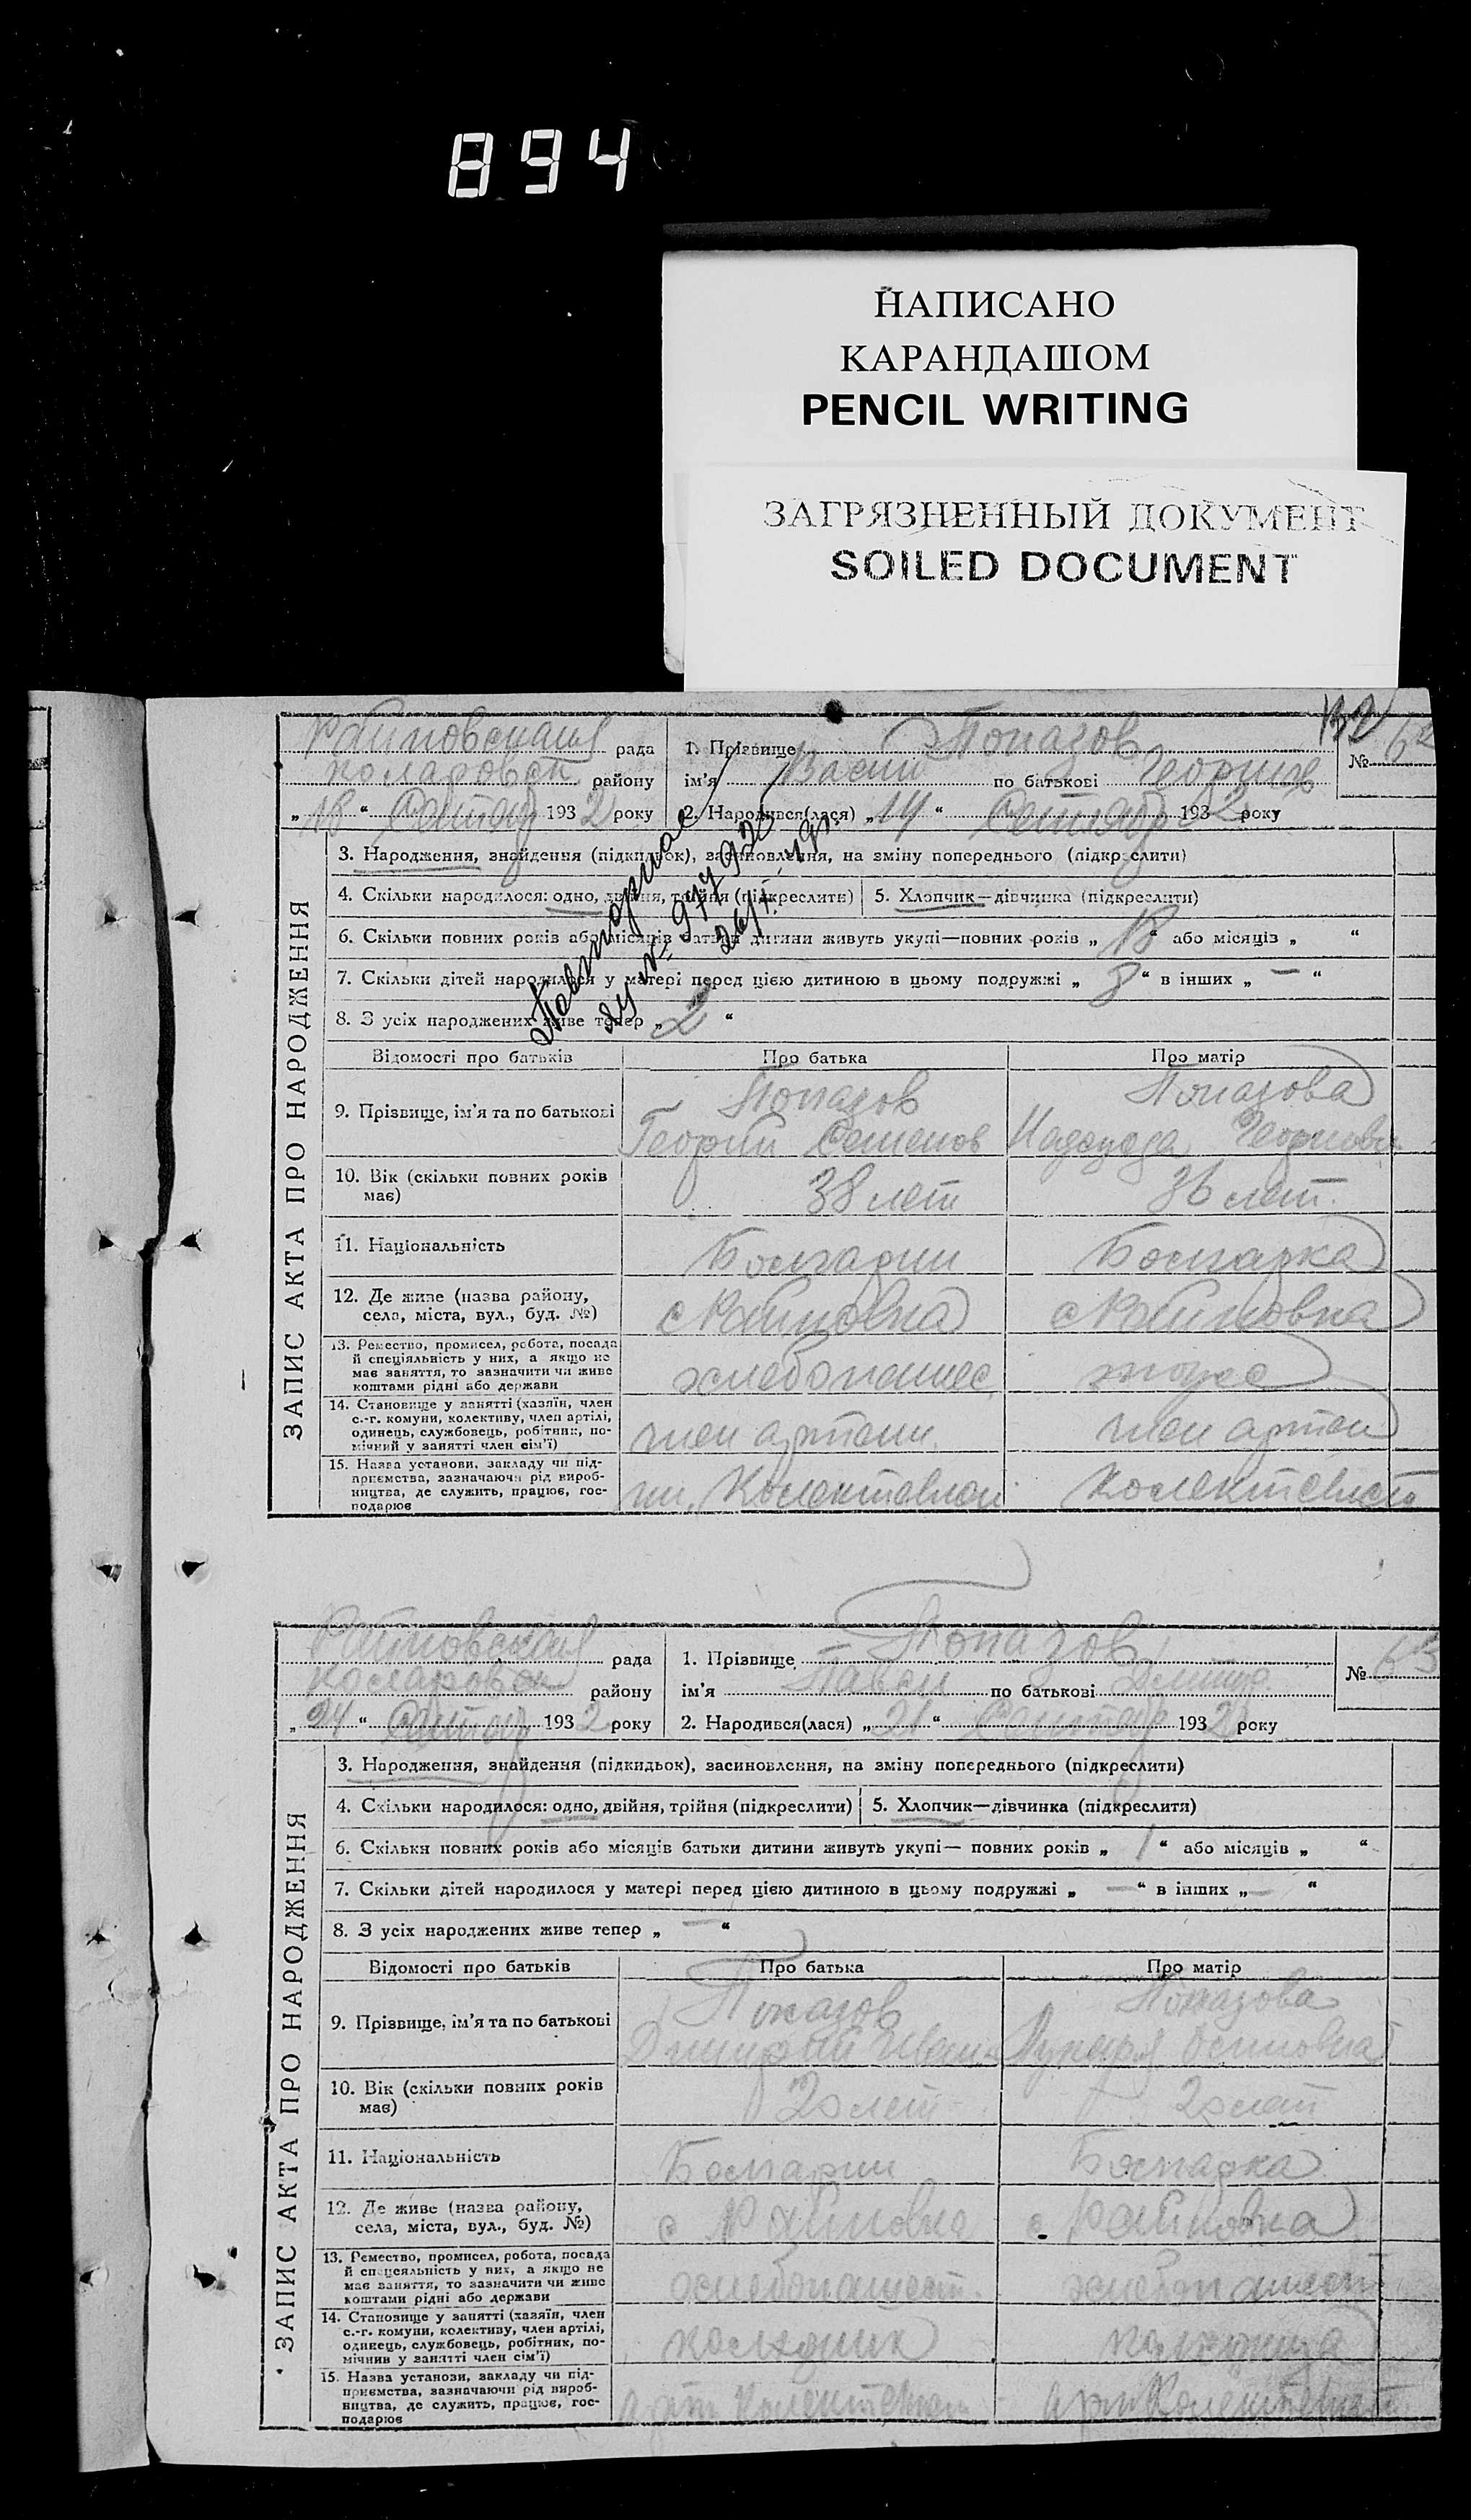 894
НАПИСАНО
КАРАНДАШОМ
PENCIL WRITING
ЗАГРЯЗНЕННЫЙ ДОКУМЕНТ
SOILED DOCUMENT
132
рада
1. Прізвище Топазов
№ 62
району
ім'я Васил по батькові Георгиев
„18“ 1932 року
2. Народився(лася) „14“ 1932 року
ЗАПИС АКТА ПРО НАРОДЖЕННЯ
3. Народження, знайдення (підкидьок), засиновлення, на зміну попереднього (підкреслити)
4. Скільки народилося: одно, двійня, трійня (підкреслити)
5. Хлопчик—дівчинка (підкреслити)
6. Скільки повних років або місяців батьки дитини живуть укупі—повних років „18“ або місяців „ “
7. Скільки дітей народилося у матері перед цією дитиною в цьому подружжі „8“ в інших „—“
8. З усіх народжених живе тепер „2“
Повторное
Відомості про батьків
Про батька
Про матір
9. Прізвище, ім'я та по батькові
Топазов
Георгий Семенов
Топазова
Надежда Георгиевн
10. Вік (скільки повних років
має)
38 лет
36 лет
11. Національність
Болгарин
Болгарка
12. Де живе (назва району,
села, міста, вул., буд. №)
с Райновка
с Райновка
13. Ремество, промисел, робота, посада
й спеціяльність у них, а якщо не
має заняття, то зазначити чи живе
коштами рідні або держави
хлебопашес
тоже
14. Становище у занятті (хазяїн, член
с.-г. комуни, колективу, член артілі,
одинець, службовець, робітник, по-
мічний у занятті член сім'ї)
член артели
член артел
15. Назва установи, закладу чи під-
приємства, зазначаючи рід вироб-
ництва, де служить, працює, гос-
подарює
рада
1. Прізвище Топазов
№ 63
району
ім'я Павел по батькові
„24“ 1932 року
2. Народився(лася) „21“ 1932 року
ЗАПИС АКТА ПРО НАРОДЖЕННЯ
3. Народження, знайдення (підкидьок), засиновлення, на зміну попереднього (підкреслити)
4. Скільки народилося: одно, двійня, трійня (підкреслити)
5. Хлопчик—дівчинка (підкреслити)
6. Скільки повних років або місяців батьки дитини живуть укупі— повних років „1“ або місяців „ “
7. Скільки дітей народилося у матері перед цією дитиною в цьому подружжі „—“ в інших „—“
8. З усіх народжених живе тепер „—“
Відомості про батьків
Про батька
Про матір
9. Прізвище, ім'я та по батькові
Топазов
Топазова
Осиповна
10. Вік (скільки повних років
має)
20 лет
20 лет
11. Національність
Болгарин
Болгарка
12. Де живе (назва району,
села, міста, вул., буд. №)
с Райновка
с. Райновка
13. Ремество, промисел, робота, посада
й спецеяльність у них, а якщо не
має заняття, то зазначити чи живе
коштами рідні або держави
14. Становище у занятті (хазяїн, член
с.-г. комуни, колективу, член артілі,
одинець, службовець, робітник, по-
мічний у занятті член сім'ї)
15. Назва установи, закладу чи під-
приємства, зазначаючи рід вироб-
ництва, де служить, працює, гос-
подарює